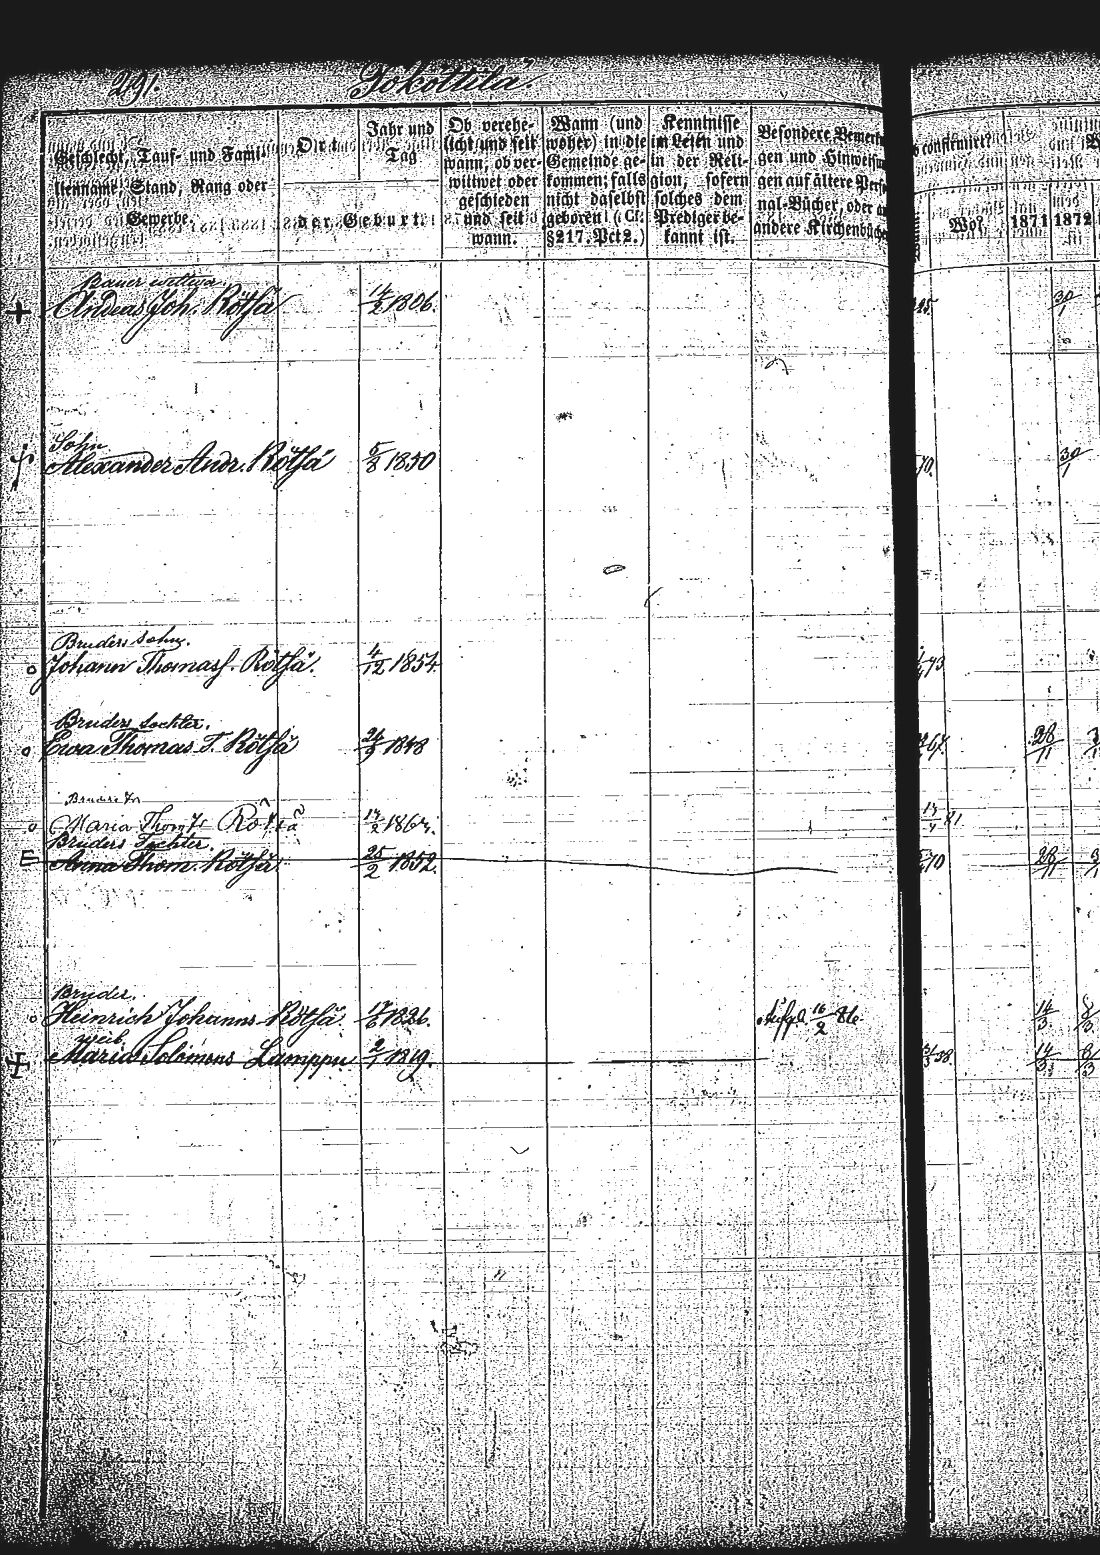 291.
Tokottila.
Geschlecht, Tauf- und Fami-
lienname, Stand, Rang oder
Gewerbe.
Ort
Jahr und
Tag
der Geburt.
Ob verehe-
licht und seit
wann, ob ver-
wittwet oder
geschieden
und seit
wann.
Wann (und
woher) in die
Gemeinde ge-
kommen; falls
nicht daselbst
geboren
§217. Pct 2.)
Kenntnisse
im Lesen und
in der Reli-
gion, sofern
solches dem
Prediger be-
kannt ist.
Besondere Bemerku
gen und Hinweisu
gen auf ältere Perso
nal-Bücher, oder a
andere Kirchenbüche
confirmirt?
Wo?
1871 1872
Bauer wittwer
Andreas Joh. Rötsä 14/2 1806. 25. 30/1
Sohn
Alexander Andr. Rötsä 5/8 1850 70. 30/1
Bruders Sohn.
Johann Thomas S. Rötsä. 4/12 1854 73
Bruders Tochter.
Ewa Thomas T. Rötsä 24/9 1848 67. 28/11
Maria Rötsä 81
Bruders Tochter.
Anna Thom. Rötsä. 25/2 1852. 70 28/11
Bruder.
Heinrich Johanns Rötsä 17/6 1826. 16/2 86. 14/3. 8/3
weib.
Maria Solomons Lamppu 2/7 1819. 38. 14/3 8/3